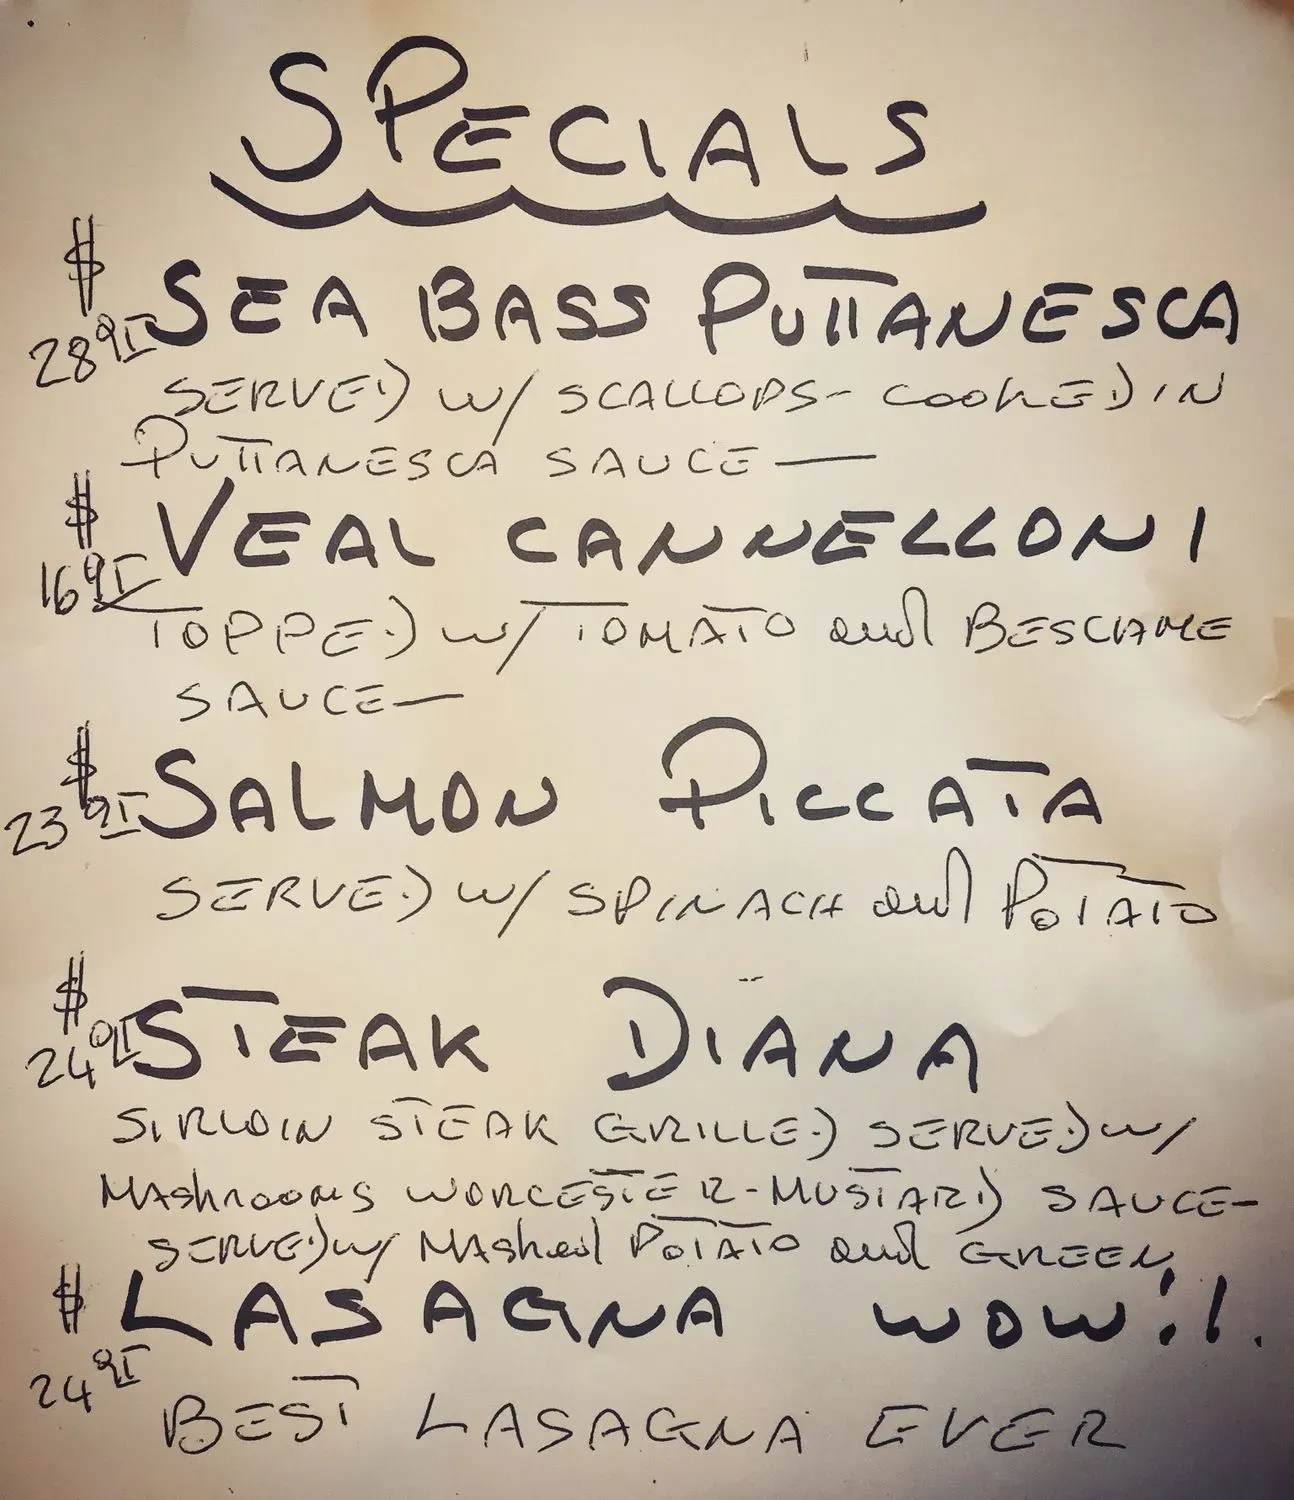 SPECIALS
$ 28 95 SEA BASS PUTTANESCA
SERVED W/ SCALLOPS- COOKED IN
PUTTANESCA SAUCE —
$ 16 95 VEAL CANNELLONI
TOPPED W/ TOMATO and BESCHAME
SAUCE —
$ 23 95 SALMON PICCATA
SERVED W/ SPINACH and POTATO
$ 24 95 STEAK DIANA
SIRLOIN STEAK GRILLED SERVED W/
MAshrooms WORCESTER-MUSTARD SAUCE-
SERVED W/ MAshed POTATO and GREEN
$ 24 95 LASAGNA WOW!!.
BEST LASAGNA EVER